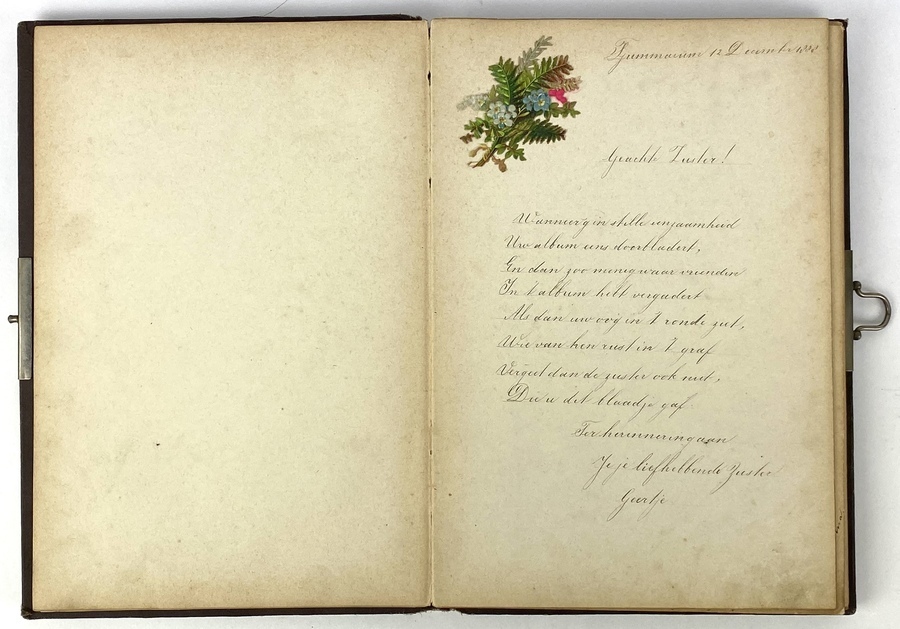 Tjummarum 12 December
Geachte Zuster!
Wanneer g'in stille eenzaamheid
Uw album eens doorbladert,
En dan zoo menig waar vrienden
In 't album hebt vergadert
Als dan uw oog in 't ronde ziet,
Wie van hen rust in 't graf
Vergeet dan de zuster ook niet,
Die u dit blaadje gaf.
Ter herinnering aan
Je je liefhebbende Zuster
Geertje